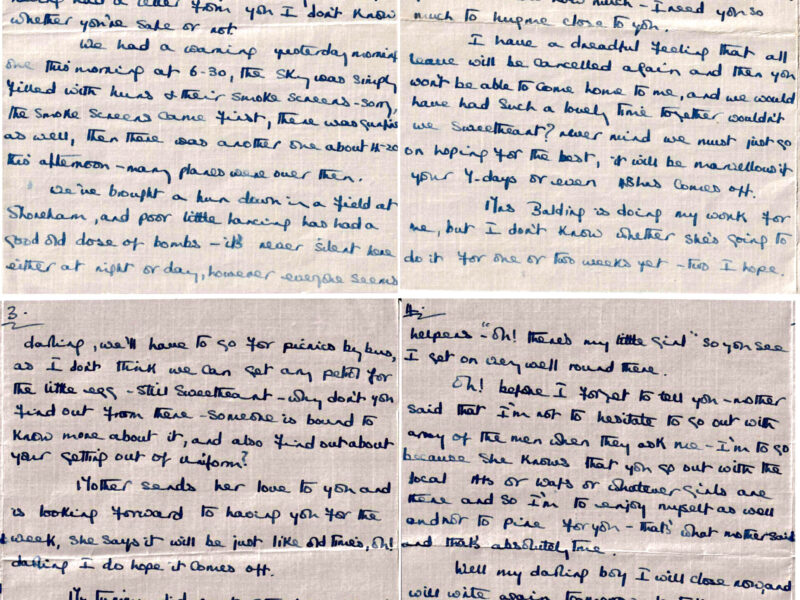 had a letter from you I don't know
whether you're safe or not.
We had a warning yesterday morning
one this morning at 6-30, the sky was simply
filled with huns & their smoke screens - sorry,
the smoke screens came first, there was gunfire
as well, then there was another one about
this afternoon - many planes were over then.
We've brought a hun down in a field at
Shoreham, and poor little Lancing has had a
good old dose of bombs - it's never silent here
either at night or day, however everyone seems
much - I need you so
much to hug me close to you.
I have a dreadful feeling that all
leave will be cancelled again and then you
won't be able to come home to me, and we would
have had such a lovely time together wouldn't
we Sweetheart? never mind we must just go
on hoping for the best, it will be marvellous if
your 7-days or even comes off.
Mrs Balding is doing my work for
me, but I don't know whether she's going to
do it for one or two weeks yet - two I hope.
3.
darling, we'll have to go for picnics by bus,
as I don't think we can get any petrol for
the little egg - still Sweetheart - why don't you
find out from there - someone is bound to
know more about it, and also find out about
your getting out of uniform?
Mother sends her love to you and
is looking forward to having you for the
week, she says it will be just like old times, oh!
darling I do hope it comes off.
4.
helpers - "oh! there's my little girl" so you see
I get on very well round there.
Oh! before I forget to tell you - mother
said that I'm not to hesitate to go out with
any of the men when they ask me - I'm to go
because she knows that you go out with the
local Ats or Wafs or whatever girls are
there and so I'm to enjoy myself as well
and not to pine for you - that's what mother said
and that's absolutely true.
Well my darling boy I will close now, and
will write again